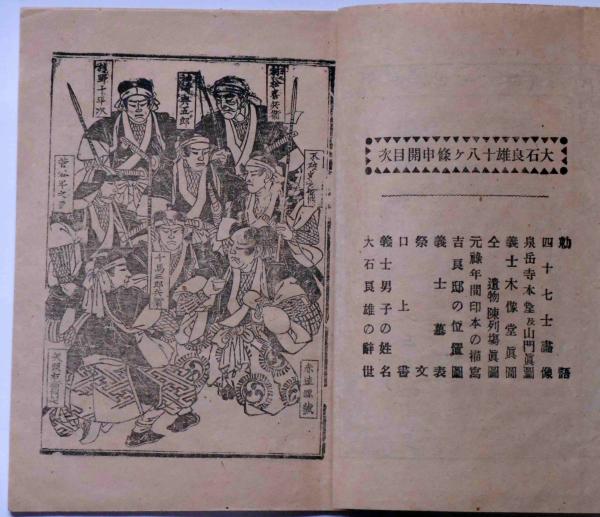 大石良雄十八ヶ條申開目次
勅語
四十七士畵像
泉岳寺本堂及山門眞圖
義士木像堂眞圖
仝遺物陳列塲眞圖
元祿年間印本の描寫
吉良邸の位置圖
義士墓表
祭文
口上書
義士男子の姓名
大石良雄の辭世
赤垣源藏
神﨑與五郎
杉野十平次
菅谷半之丞